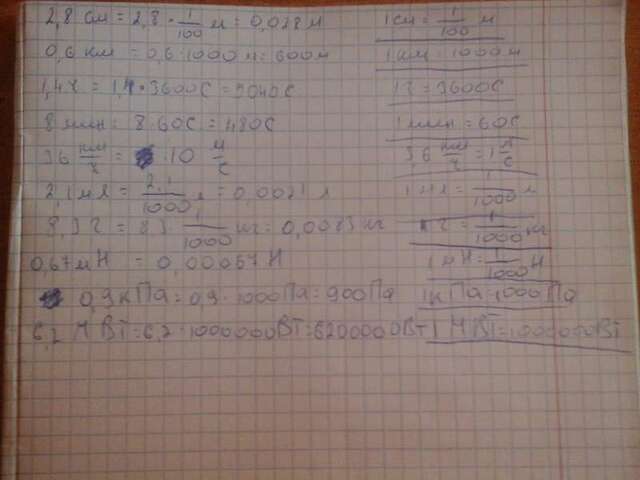 2,8 см = 2,8 · 1/100 м = 0,028 м 1 см = 1/100 м
0,6 км = 0,6 · 1000 м = 600 м 1 км = 1000 м
1,4 ч = 1,4 · 3600 С = 5040 С 1 ч = 3600 С
8 мин = 8 · 60 С = 480 С 1 мин = 60 С
36 км/ч = · 10 м/с 3,6 км/ч = 1 м/с
2,1 мл = 2,1/1000 л = 0,0021 л 1 мл = 1/1000 л
8,3 г = 83 · 1/1000 кг = 0,0083 кг 1 г = 1/1000 кг
0,67 мН = 0,00067 Н 1 мН = 1/1000 Н
0,9 кПа = 0,9 · 1000 Па = 900 Па 1 кПа = 1000 Па
6,2 МВт = 6,2 · 1000000 Вт = 6200000 Вт 1 МВт = 1000000 Вт